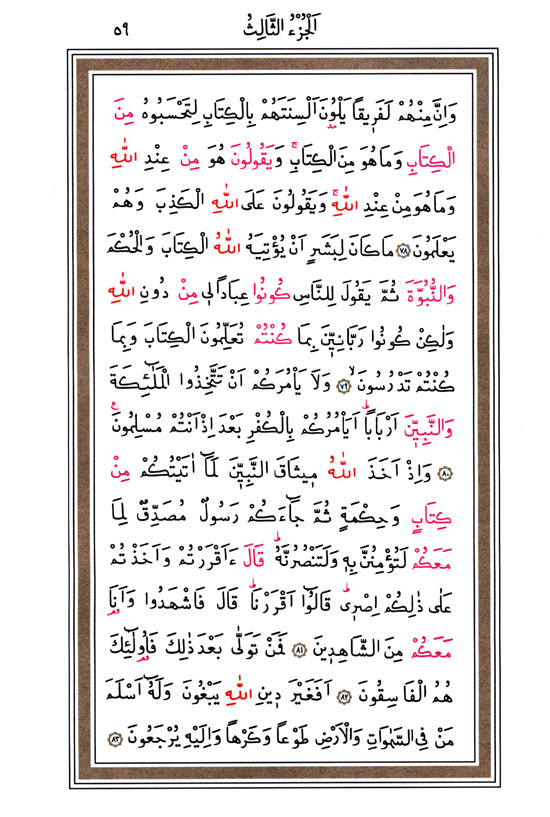 اَلْجُزْءُ الثَّالِثُ ٥٩
وَاِنَّ مِنْهُمْ لَفَرٖيقاً يَلْوُ۫نَ اَلْسِنَتَهُمْ بِالْكِتَابِ لِتَحْسَبُوهُ مِنَ
الْكِتَابِ وَمَا هُوَ مِنَ الْكِتَابِۚ وَيَقُولُونَ هُوَ مِنْ عِنْدِ اللّٰهِ
وَمَا هُوَ مِنْ عِنْدِ اللّٰهِۚ وَيَقُولُونَ عَلَى اللّٰهِ الْكَذِبَ وَهُمْ
يَعْلَمُونَ ﴿٧٨﴾ مَا كَانَ لِبَشَرٍ اَنْ يُؤْتِيَهُ اللّٰهُ الْكِتَابَ وَالْحُكْمَ
وَالنُّبُوَّةَ ثُمَّ يَقُولَ لِلنَّاسِ كُونُوا عِبَاداً لٖي مِنْ دُونِ اللّٰهِ
وَلٰكِنْ كُونُوا رَبَّانِيّٖنَ بِمَا كُنْتُمْ تُعَلِّمُونَ الْكِتَابَ وَبِمَا
كُنْتُمْ تَدْرُسُونَۙ ﴿٧٩﴾ وَلَا يَأْمُرَكُمْ اَنْ تَتَّخِذُوا الْمَلٰٓئِكَةَ
وَالنَّبِيّٖنَ اَرْبَاباًؕ اَيَأْمُرُكُمْ بِالْكُفْرِ بَعْدَ اِذْ اَنْتُمْ مُسْلِمُونَ ع
﴿٨٠﴾ وَاِذْ اَخَذَ اللّٰهُ مٖيثَاقَ النَّبِيّٖنَ لَمَٓا اٰتَيْتُكُمْ مِنْ
كِتَابٍ وَحِكْمَةٍ ثُمَّ جَٓاءَكُمْ رَسُولٌ مُصَدِّقٌ لِمَا
مَعَكُمْ لَتُؤْمِنُنَّ بِهٖ وَلَتَنْصُرُنَّهُؕ قَالَ ءَاَقْرَرْتُمْ وَاَخَذْتُمْ
عَلٰى ذٰلِكُمْ اِصْرٖيؕ قَالُٓوا اَقْرَرْنَاؕ قَالَ فَاشْهَدُوا وَاَنَا۬
مَعَكُمْ مِنَ الشَّاهِدٖينَ ﴿٨١﴾ فَمَنْ تَوَلّٰى بَعْدَ ذٰلِكَ فَاُو۬لٰٓئِكَ
هُمُ الْفَاسِقُونَ ﴿٨٢﴾ اَفَغَيْرَ دٖينِ اللّٰهِ يَبْغُونَ وَلَهُٓ اَسْلَمَ
مَنْ فِي السَّمٰوَاتِ وَالْاَرْضِ طَوْعاً وَكَرْهاً وَاِلَيْهِ يُرْجَعُونَ ﴿٨٣﴾